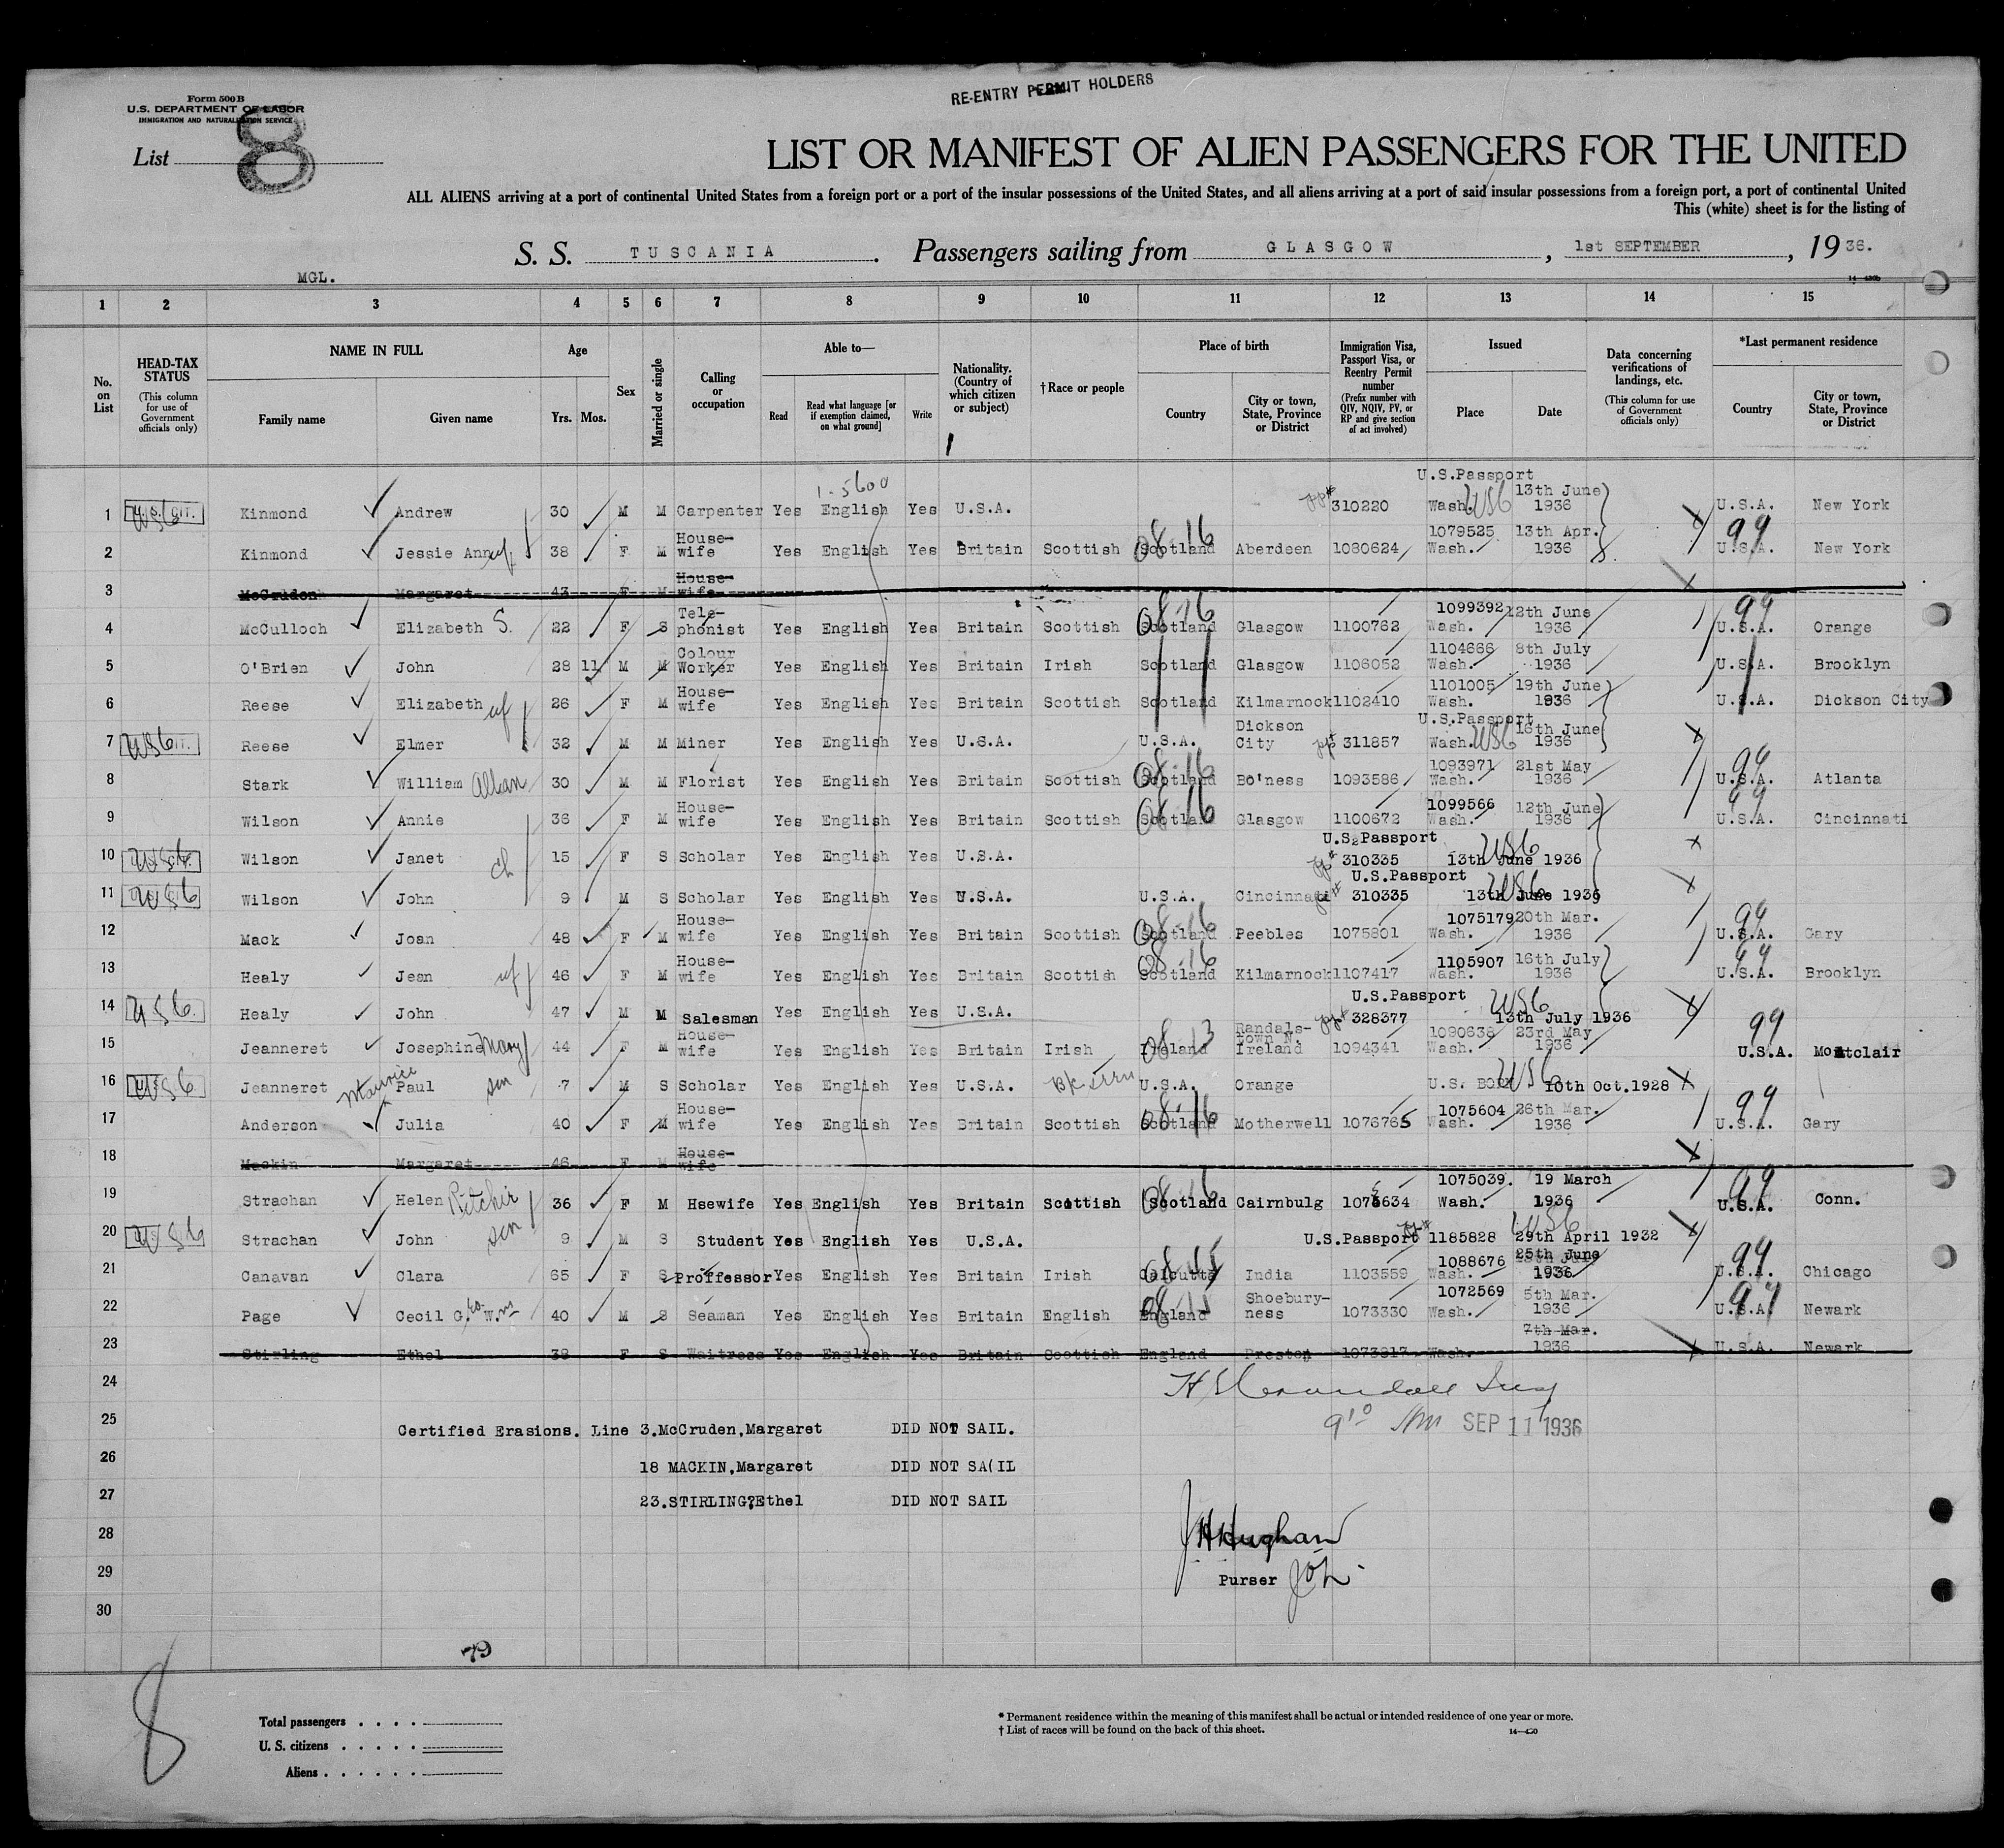 RE-ENTRY PERMIT HOLDERS
Form 500 B
U.S. DEPARTMENT OF LABOR
IMMIGRATION AND NATURALIZATION SERVICE
List 8
LIST OR MANIFEST OF ALIEN PASSENGERS FOR THE UNITED
ALL ALIENS arriving at a port of continental United States from a foreign port or a port of the insular possessions of the United States, and all aliens arriving at a port of said insular possessions from a foreign port, a port of continental United
This (white) sheet is for the listing of
S. S. TUSCANIA. Passengers sailing from GLASGOW, 1st SEPTEMBER, 1936.
MGL.
1 2 3 4 5 6 7 8 9 10 11 12 13 14 15
No. on List
HEAD-TAX STATUS (This column for use of Government officials only)
NAME IN FULL Family name Given name
Age Yrs. Mos.
Sex
Married or single
Calling or occupation
Able to— Read Read what language [or if exemption claimed, on what ground] Write
Nationality. (Country of which citizen or subject)
†Race or people
Place of birth Country City or town, State, Province or District
Immigration Visa, Passport Visa, or Reentry Permit number (Prefix number with QIV, NQIV, PV, or RP and give section of act involved)
Issued Place Date
Data concerning verifications of landings, etc. (This column for use of Government officials only)
*Last permanent residence Country City or town, State, Province or District
1-5600
1 USC Kinmond Andrew 30 M M Carpenter Yes English Yes U.S.A. 310220 U.S.Passport Wash. USC 13th June 1936 U.S.A. New York
2 Kinmond Jessie Ann wf 38 F M House-wife Yes English Yes Britain Scottish Scotland 08-16 Aberdeen 1080624 1079525 Wash. 13th Apr. 1936 99 U.S.A. New York
3 McCruden Margaret 43 F M House-wife
4 McCulloch Elizabeth S. 22 F S Tele-phonist Yes English Yes Britain Scottish Scotland 08-16 Glasgow 1100762 1099392 Wash. 12th June 1936 99 U.S.A. Orange
5 O'Brien John 28 11 M M Colour Worker Yes English Yes Britain Irish Scotland Glasgow 1106052 1104666 Wash. 8th July 1936 U.S.A. Brooklyn
6 Reese Elizabeth wf 26 F M House-wife Yes English Yes Britain Scottish Scotland Kilmarnock 1102410 1101005 Wash. 19th June 1936 U.S.A. Dickson City
7 USC Reese Elmer 32 M M Miner Yes English Yes U.S.A. U.S.A. Dickson City 311857 U.S.Passport Wash. USC 16th June 1936
8 Stark William Alban 30 M M Florist Yes English Yes Britain Scottish Scotland 08-16 Bo'ness 1093586 1093971 Wash. 21st May 1936 99 U.S.A. Atlanta
9 Wilson Annie 36 F M House-wife Yes English Yes Britain Scottish Scotland 08-16 Glasgow 1100672 1099566 Wash. 12th June 1936 99 U.S.A. Cincinnati
10 USC Wilson Janet ch 15 F S Scholar Yes English Yes U.S.A. U.S.Passport 310335 USC 13th June 1936
11 USC Wilson John 9 M S Scholar Yes English Yes U.S.A. U.S.A. Cincinnati U.S.Passport 310335 USC 13th June 1936
12 Mack Joan 48 F M House-wife Yes English Yes Britain Scottish Scotland 08-16 Peebles 1075801 1075179 Wash. 20th Mar. 1936 99 U.S.A. Gary
13 Healy Jean wf 46 F M House-wife Yes English Yes Britain Scottish Scotland 08-16 Kilmarnock 1107417 1105907 Wash. 16th July 1936 99 U.S.A. Brooklyn
14 USC Healy John 47 M M Salesman Yes English Yes U.S.A. U.S.Passport 328377 USC 13th July 1936
15 Jeanneret Josephine Mary 44 F M House-wife Yes English Yes Britain Irish Ireland 08-13 Randals-town N. Ireland 1094341 1090638 Wash. 23rd May 1936 99 U.S.A. Montclair
16 USC Jeanneret Maurice Paul son 7 M S Scholar Yes English Yes U.S.A. U.S.A. Orange U.S. BORN USC 10th Oct.1928
17 Anderson Julia 40 F M House-wife Yes English Yes Britain Scottish Scotland 08-16 Motherwell 1076765 1075604 Wash. 26th Mar. 1936 99 U.S.A. Gary
18 Mackin Margaret 46 F M House-wife
19 Strachan Helen Ritchie 36 F M Hsewife Yes English Yes Britain Scottish Scotland 08-16 Cairnbulg 1075039. Wash. 19 March 1936 99 U.S.A. Conn.
20 USC Strachan John son 9 M S Student Yes English Yes U.S.A. U.S.Passport 1185828 USC 29th April 1932
21 Canavan Clara 65 F S Proffessor Yes English Yes Britain Irish Calcutta India 1103559 1088676 Wash. 25th June 1936 99 U.S.A. Chicago
22 Page Cecil Geo. Wm 40 M S Seaman Yes English Yes Britain English England 08-11 Shoebury-ness 1073330 1072569 Wash. 5th Mar. 1936 99 U.S.A. Newark
23 Stirling Ethel 38 F S Waitress Yes English Yes Britain Scottish England Preston 1073817 Wash. 7th Mar. 1936 U.S.A. Newark
24
25 Certified Erasions. Line 3.McCruden,Margaret DID NOT SAIL.
9 10 AM SEP 11 1936
26 18 MACKIN,Margaret DID NOT SA(IL
27 23.STIRLING?Ethel DID NOT SAIL
28 J H Hughan
29 Purser
30
79
8
Total passengers
U. S. citizens
Aliens
* Permanent residence within the meaning of this manifest shall be actual or intended residence of one year or more.
† List of races will be found on the back of this sheet.